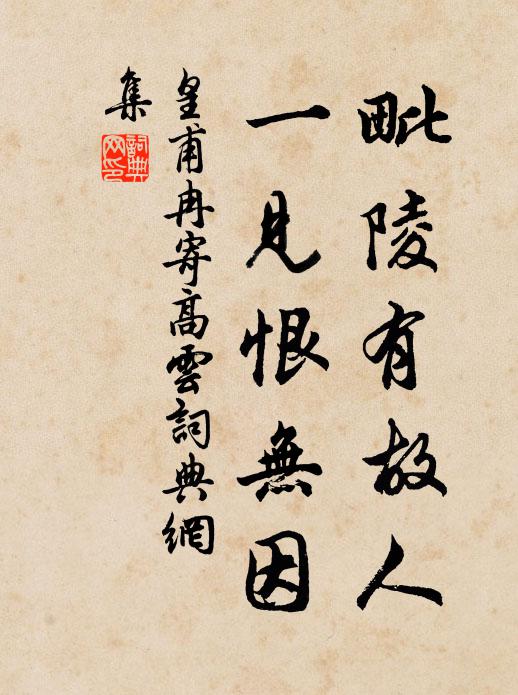 毗陵有故人
一見恨無因
皇甫冉寄高雲詞典網
集
詞典網印